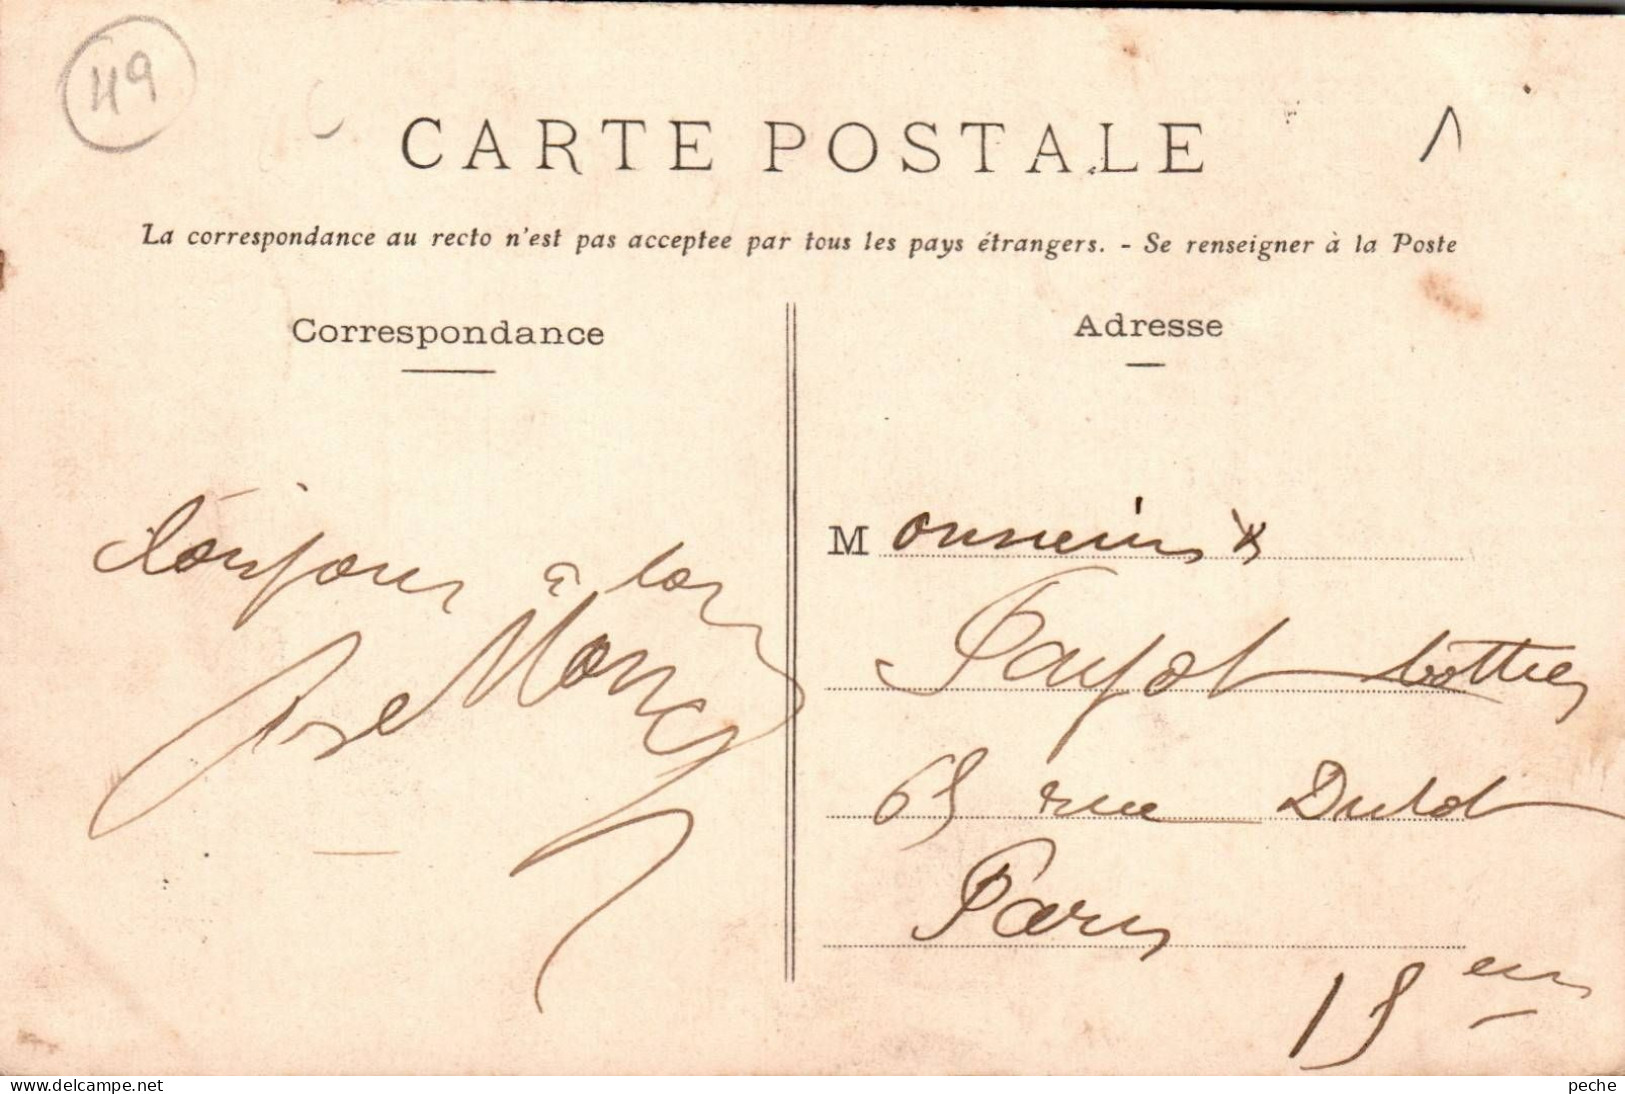 49
CARTE POSTALE
La correspondance au recto n'est pas acceptee par tous les pays étrangers. - Se renseigner à la Poste
Correspondance
Adresse
Toujours à toi
Monsieur
Payot bottier
65 rue Dutot
Paris
15 em
www.delcampe.net
peche